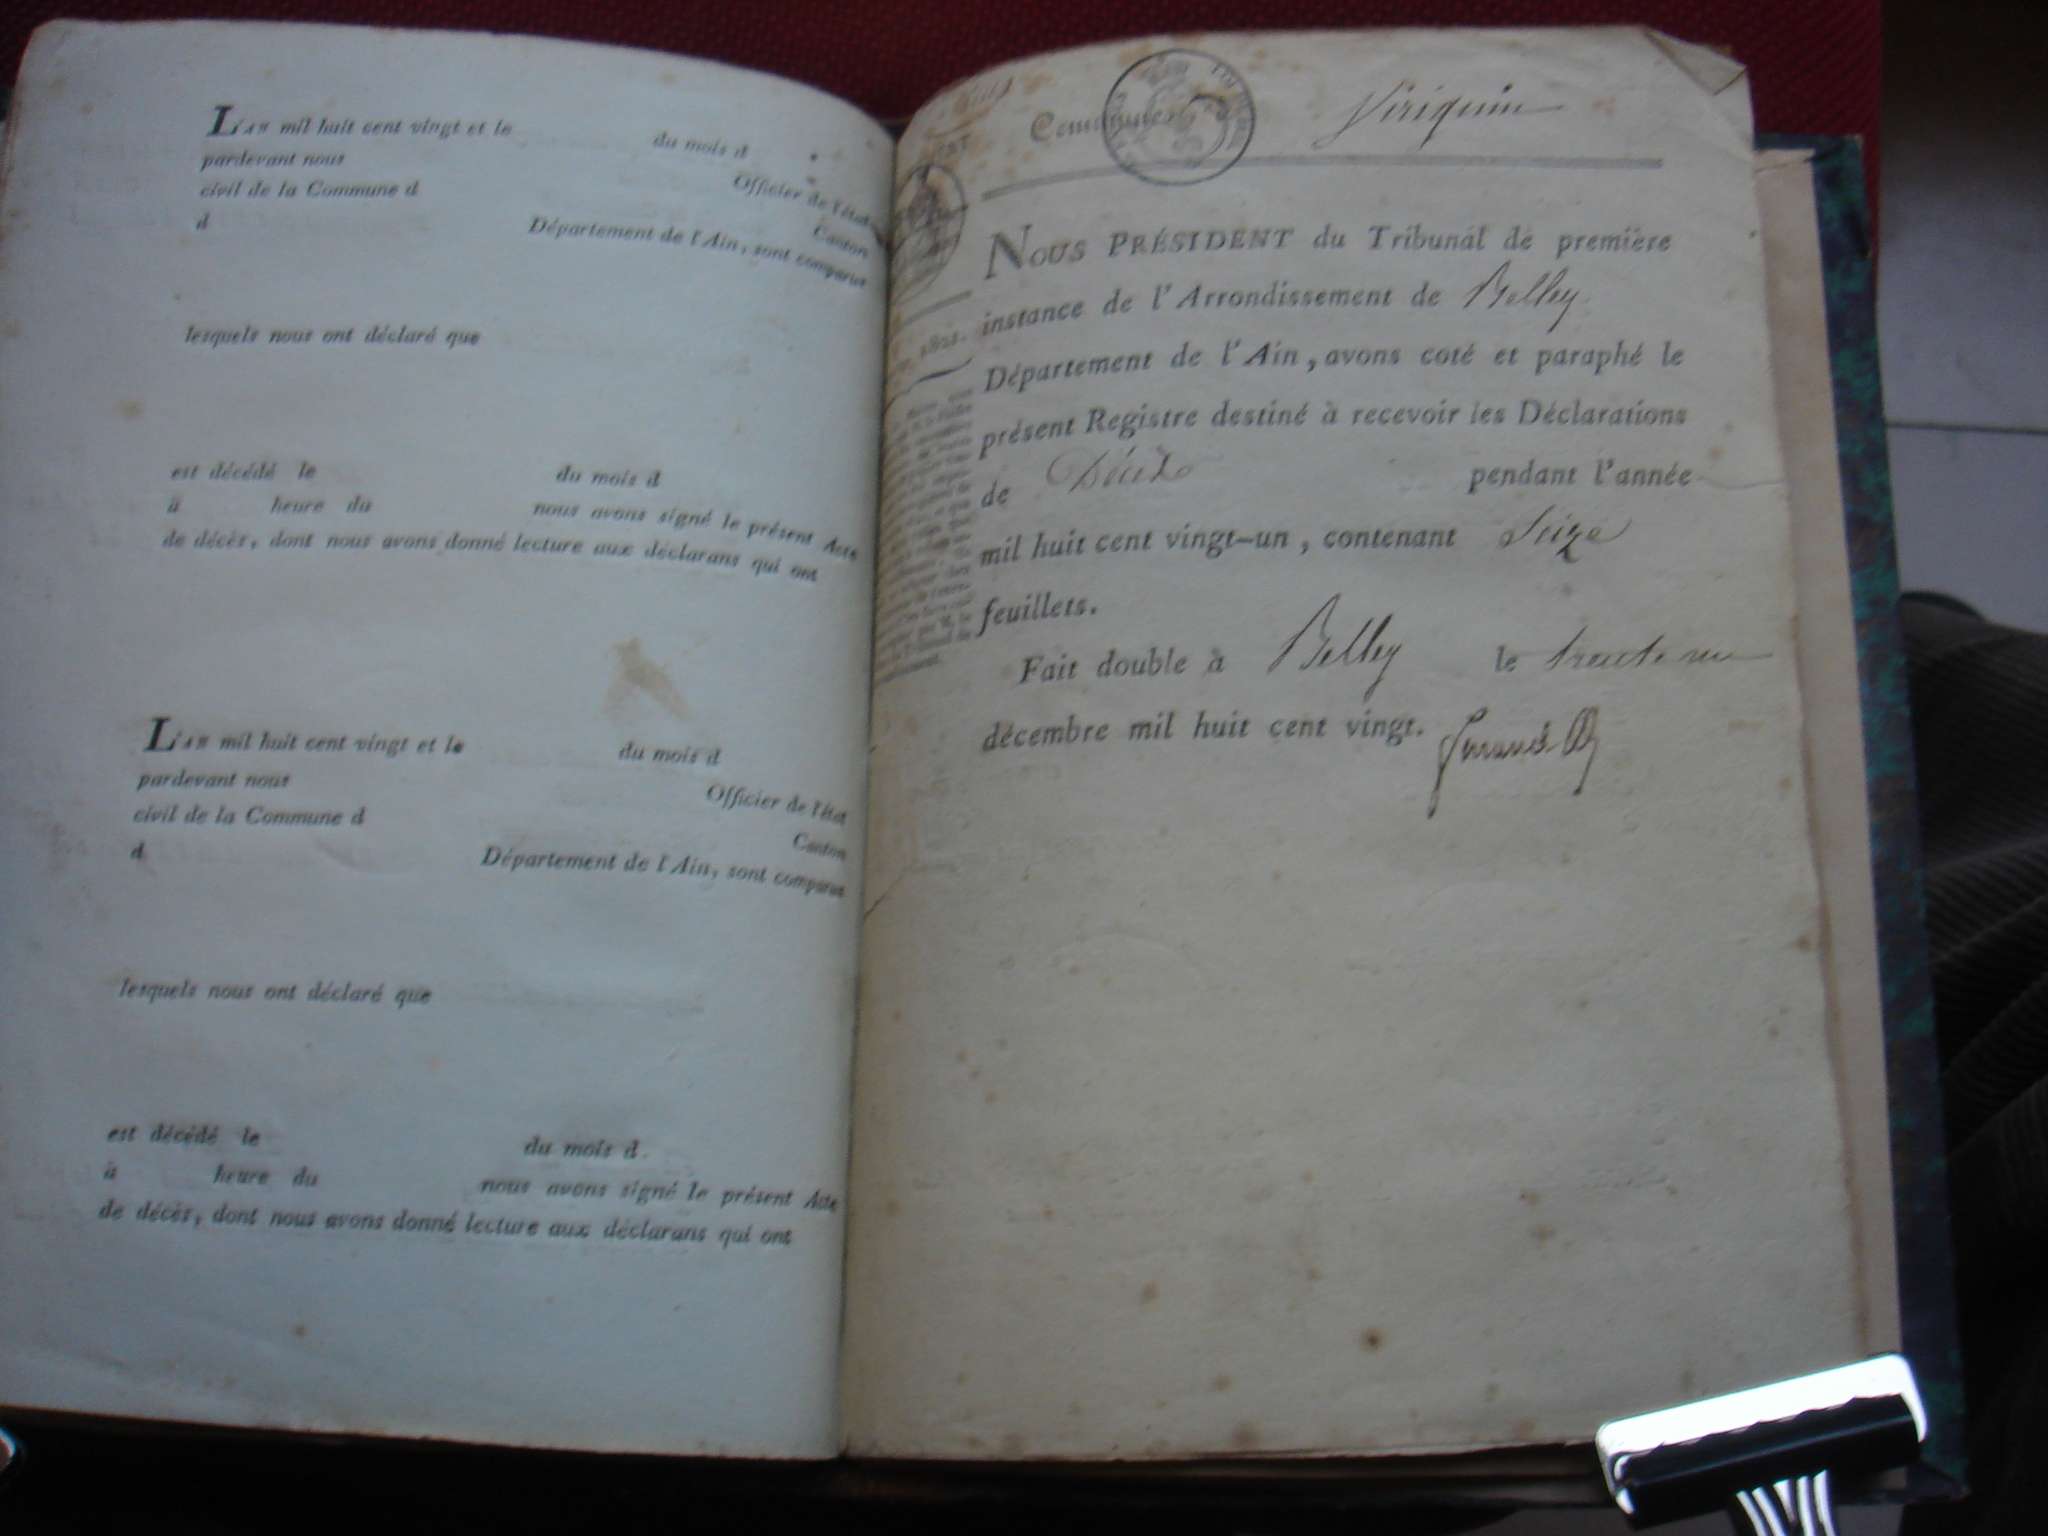 L'an mil huit cent vingt et le du mois d
pardevant nous Officier de l'état
civil de la Commune d Canton
d Département de l'Ain, sont comparus
lesquels nous ont déclaré que
est décédé le du mois d
à heure du nous avons signé le présent Acte
de décès, dont nous avons donné lecture aux déclarans qui ont
L'an mil huit cent vingt et le du mois d
pardevant nous Officier de l'état
civil de la Commune d Canton
d Département de l'Ain, sont comparus
lesquels nous ont déclaré que
est décédé le du mois d
à heure du nous avons signé le présent Acte
de décès, dont nous avons donné lecture aux déclarans qui ont
Commune de Virignin
1821.
Nous PRÉSIDENT du Tribunal de première
instance de l'Arrondissement de Belley
Département de l'Ain, avons coté et paraphé le
présent Registre destiné à recevoir les Déclarations
de Décès pendant l'année
mil huit cent vingt-un, contenant Seize
feuillets.
Fait double à Belley le trente un
décembre mil huit cent vingt.